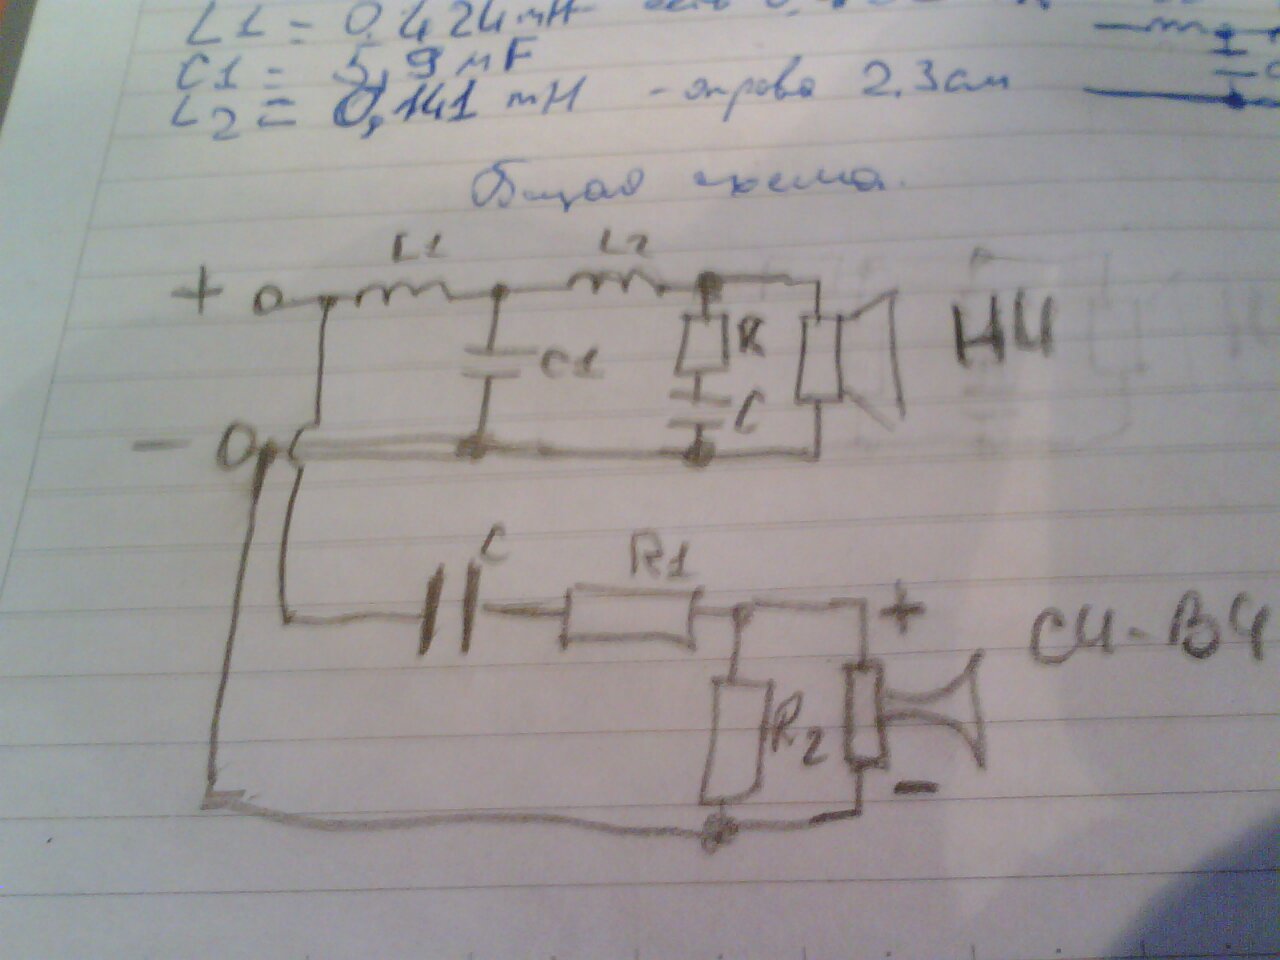 L1 = 0,424 mH
C1 = 5,9 мF
L2 = 0,141 mH - оправа 2.3см
Общая схема.
L1 L2
+
R
НЧ
C1
C
-
C
R1
+
СЧ-ВЧ
R2
-